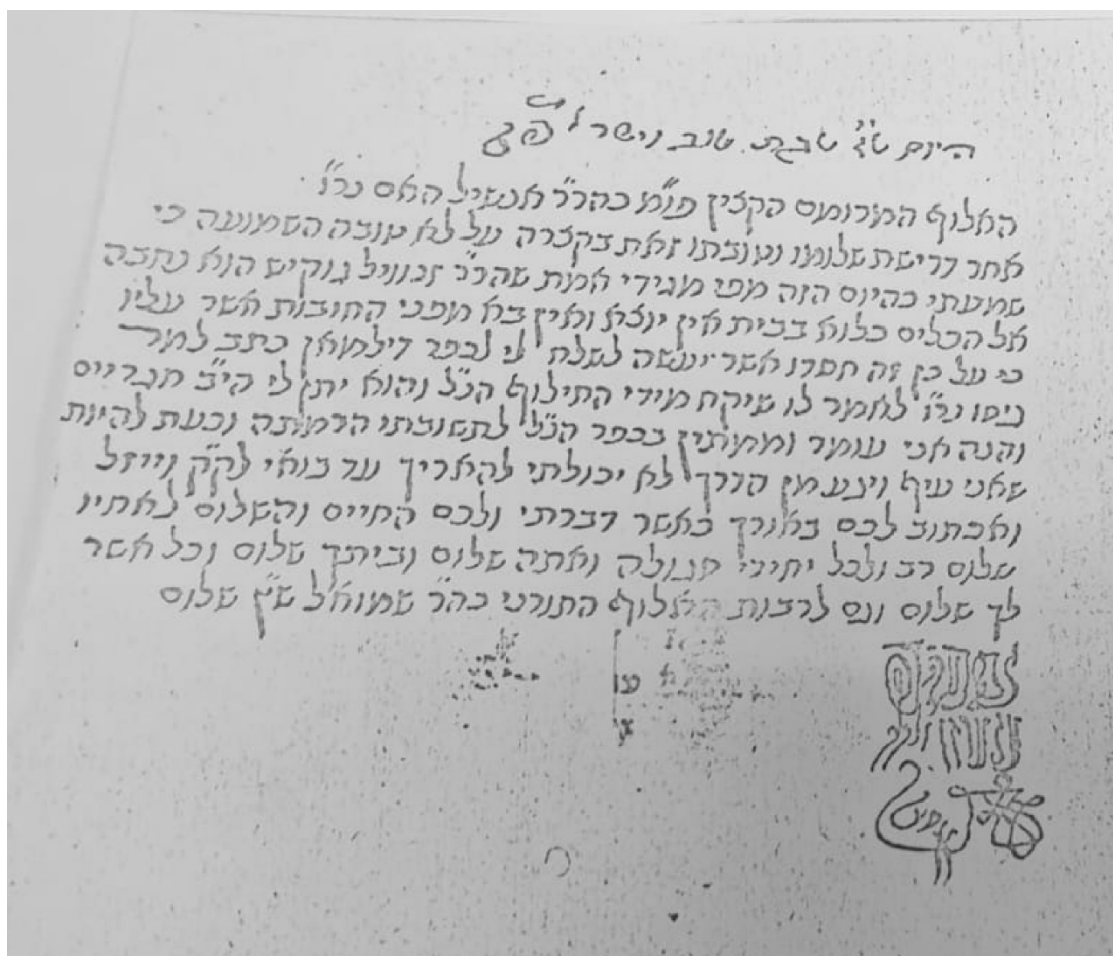 היום ט"ו שבת טוב וישר לפ"ג
האלוף המרומם הקצין פו"מ כהר"ר אנשיל האם נר"ו
אחר דרישת שלומו וטובתו זאת בקצרה על לא טובה השמועה כי
שמעתי כהיום הזה מפי מגידי אמת שהר"ר זנוויל הוא נחבה
אל הכלים כלוא בבית אין יוצא ואין בא מפני החובות אשר עליו
כי על כן זה חסדו אשר יעשה לשלח לי לכפר דילמאן כתב למר
ניסן נר"ו לאמר לו שיקח מידי החילוף הנ"ל והוא יתן לי הי"ב
והנה אני עומד וממתין בכפר הנ"ל לתשובתי הרמתה וכעת להיות
שאני עיף ויגע מן הדרך לא יכולתי להאריך עד בואי לק"ק ווייזל
ואכתוב לכם באורך כאשר דברתי ולכם החיים והשלום לאחיו
שלום רב ולכל יחידי סגולה ואתה שלום וביתך שלום וכל אשר
לך שלום וגם לרבות האלוף התורני כהר"ר שמואל ש"ץ שלום